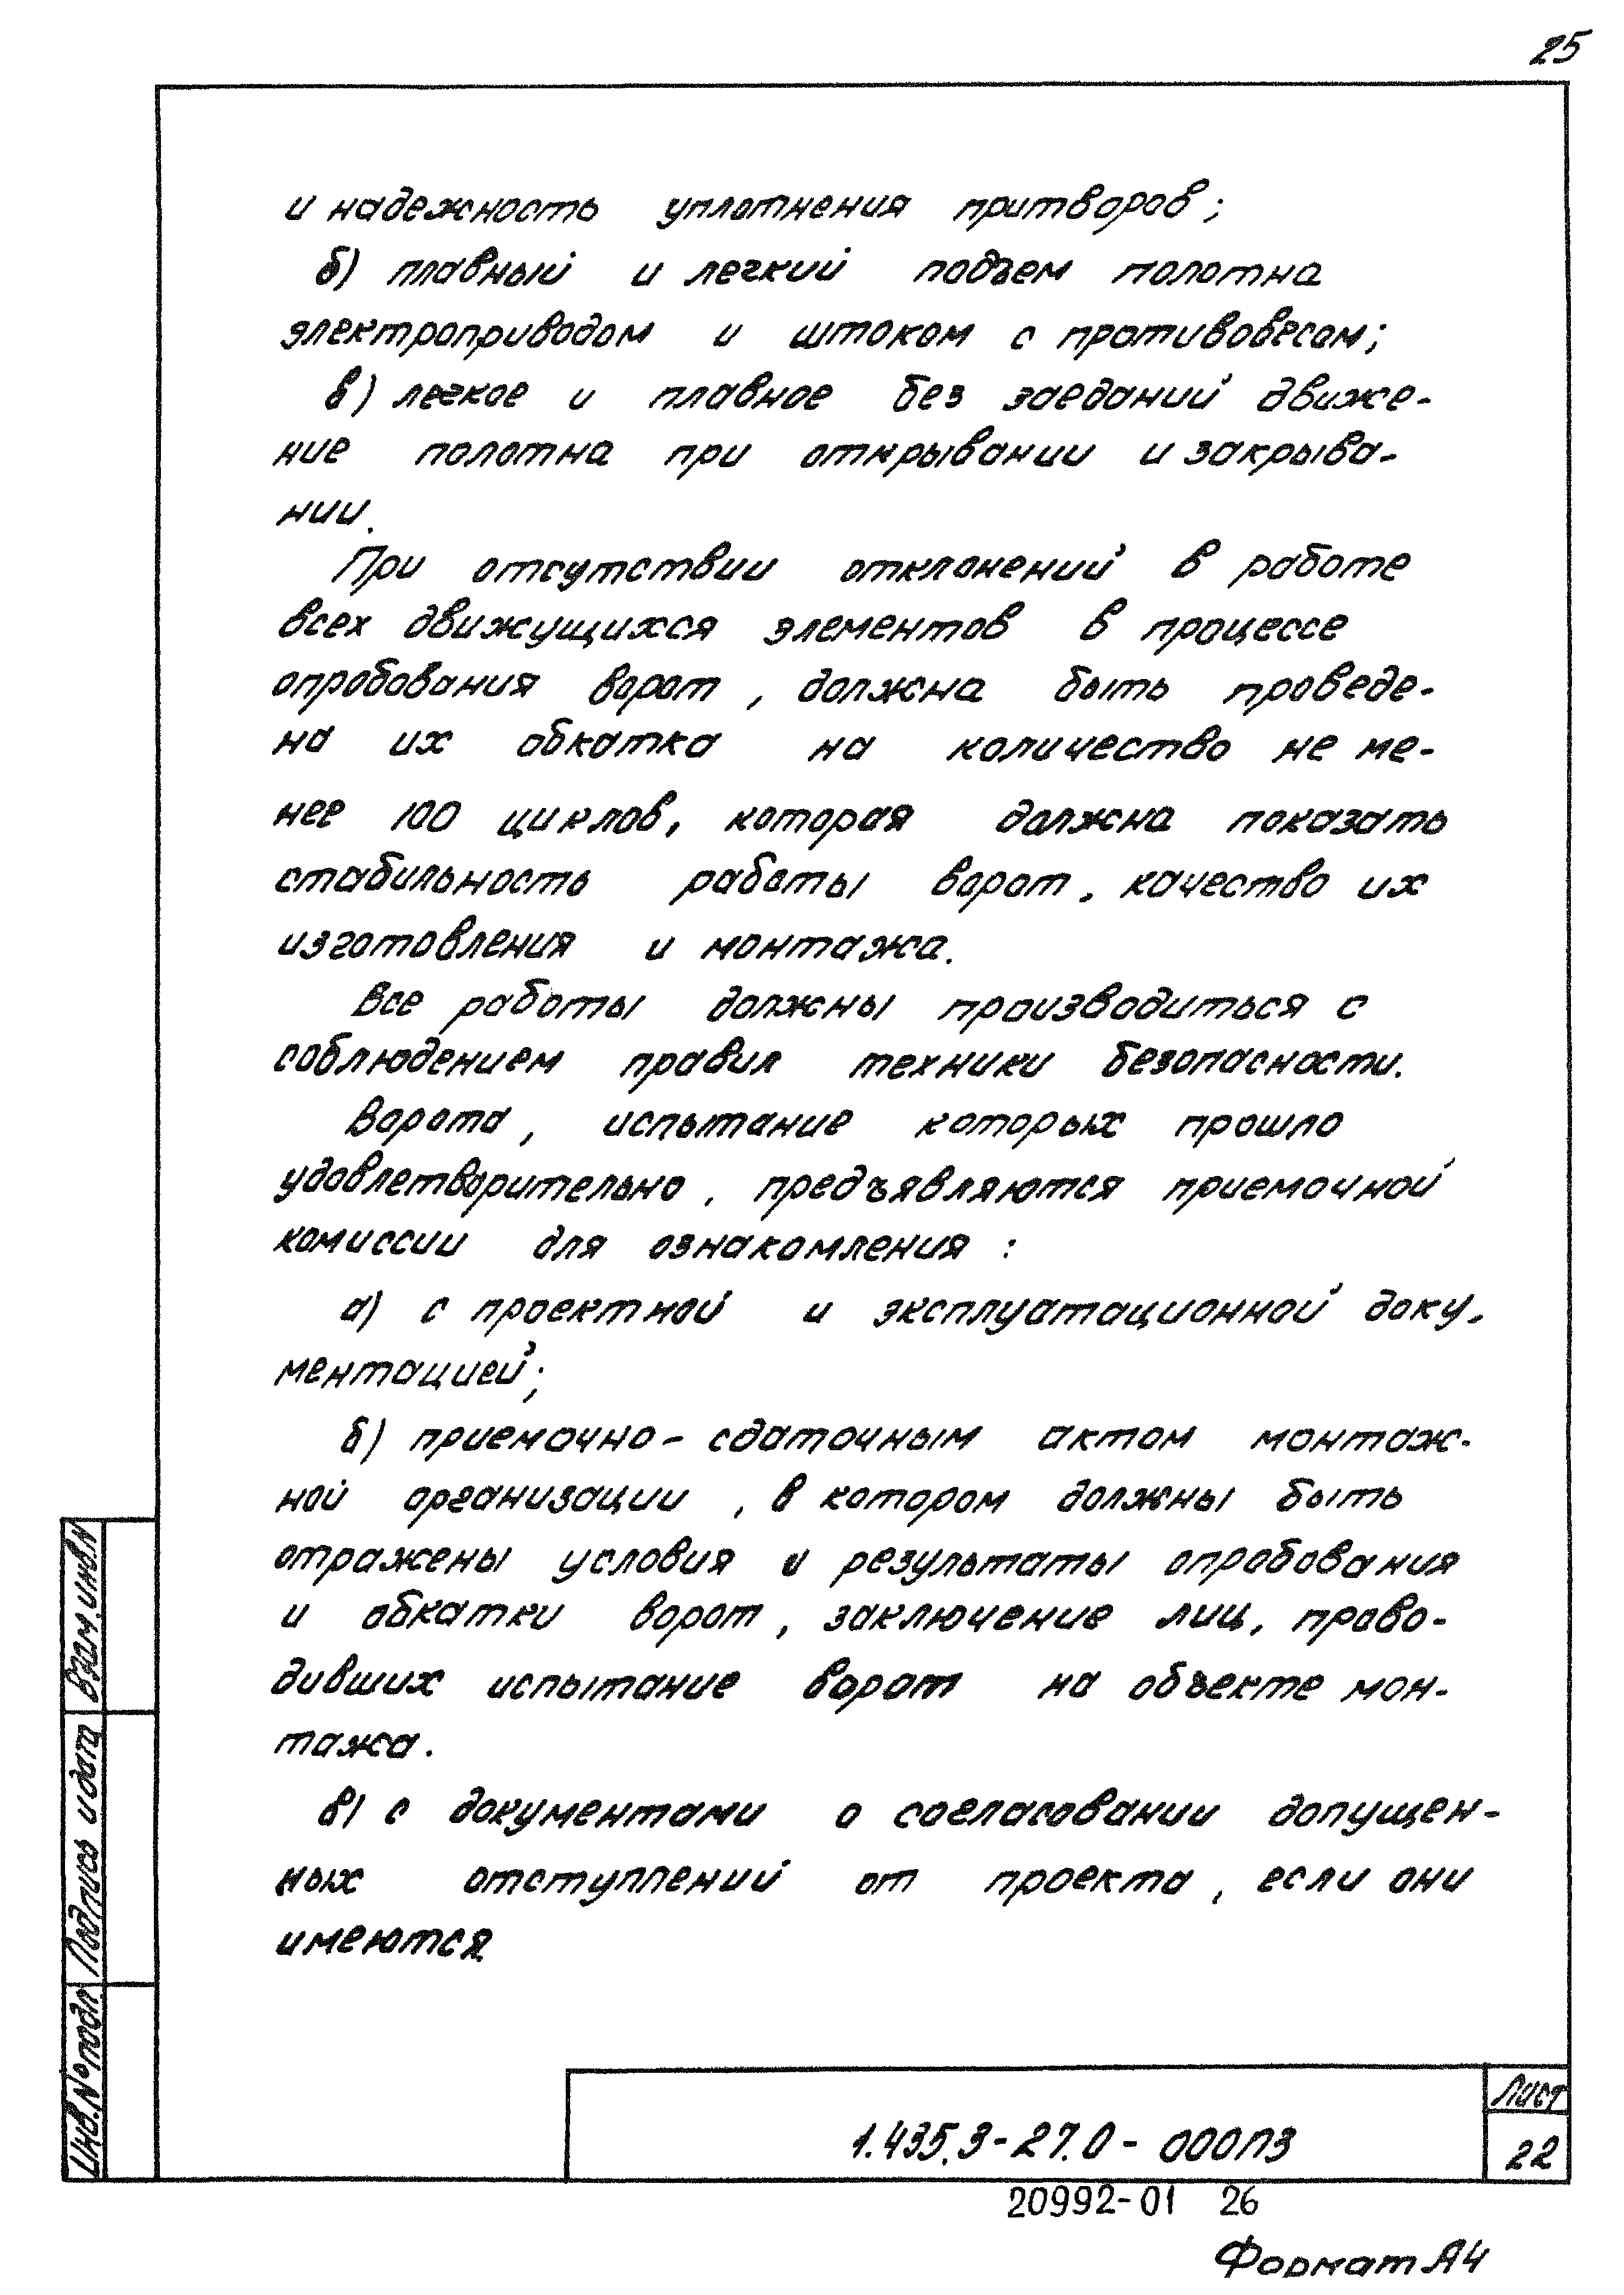 25
и надежность уплотнения притворов;
б) плавный и легкий подъем полотна
электроприводом и штоком с противовесом;
в) легкое и плавное без заеданий движе-
ние полотна при открывании и закрыва-
нии.
При отсутствии отклонений в работе
всех движущихся элементов в процессе
опробования ворот, должна быть проведе-
на их обкатка на количество не ме-
нее 100 циклов, которая должна показать
стабильность работы ворот, качество их
изготовления и монтажа.
Все работы должны производиться с
соблюдением правил техники безопасности.
Ворота, испытание которых прошло
удовлетворительно, предъявляются приемочной
комиссии для ознакомления:
а) с проектной и эксплуатационной доку-
ментацией;
б) приемочно-сдаточным актом монтаж-
ной организации, в котором должны быть
отражены условия и результаты опробования
и обкатки ворот, заключение лиц, прово-
дивших испытание ворот на объекте мон-
тажа.
в) с документами о согласовании допущен-
ных отступлений от проекта, если они
имеются.
Взам. инв. N
Подпись и дата
Инв. № подл.
1.435.3-27.0-000ПЗ
Лист
22
20992-01 26
Формат А4